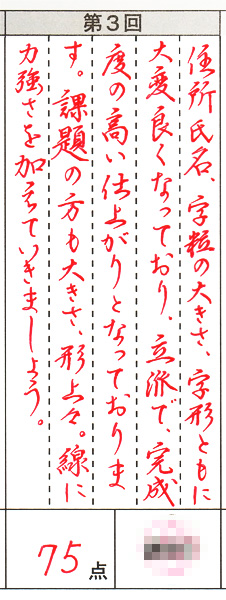 第3回
住所氏名、字粒の大きさ、字形ともに
大変良くなっており、立派で、完成
度の高い仕上がりとなっておりま
す。課題の方も大きさ、形上々。線に
力強さを加えていきましょう。
75点